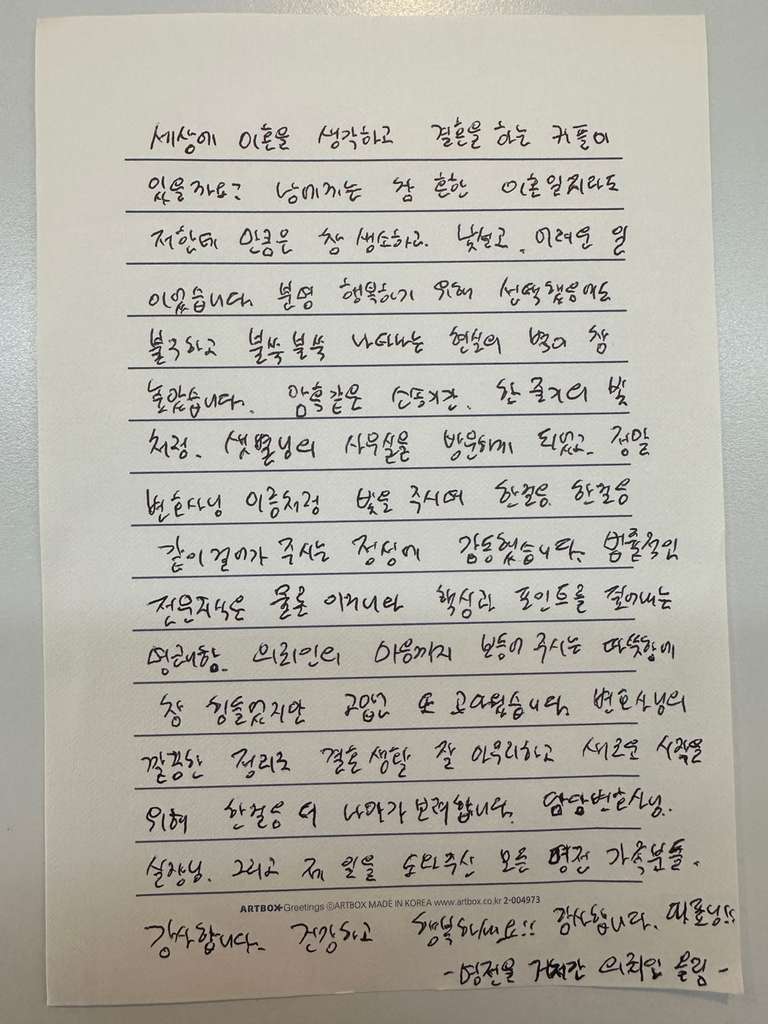 세상에 이혼을 생각하고 결혼을 하는 커플이
있을까요? 남에게는 참 흔한 이혼일지라도
저한테 만큼은 참 생소하고. 낯설고, 어려운 일
이었습니다. 분명 행복하기 위해 선택했음에도
불구하고 불쑥불쑥 나타나는 현실의 벽이 참
높았습니다. 암흑같은 소송기간. 한 줄기의 빛
처럼. 샛별님의 사무실을 방문하게 되었고. 정말
변호사님 이름처럼 빛을 주시며 한걸음. 한걸음
같이 걸어가 주시는 정성에 감동했습니다. 법률적인
전문지식은 물론 이거니와 핵심과 포인트를 짚어내는
명쾌함. 의뢰인의 마음까지 보듬어 주시는 따뜻함에
참 힘들었지만 고맙고 또 고마웠습니다. 변호사님의
깔끔한 정리로 결혼생활 잘 마무리하고 새로운 시작을
위해 한걸음 더 나아가보려합니다. 담당변호사님.
실장님. 그리고 제 일을 도와주신 모든 명전 가족분들.
ARTBOX Greetings ⓒARTBOX MADE IN KOREA www.artbox.co.kr 2-004973
감사합니다. 건강하고 행복하세요!! 감사합니다. 대표님!!
- 명전을 거쳐간 의뢰인 올림 -